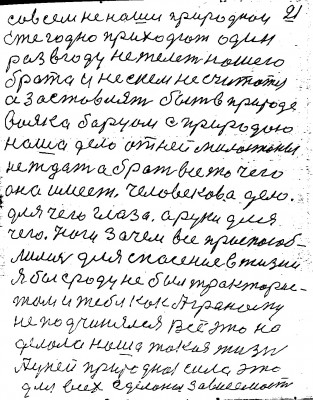 21
совсем не наши природной
ежегодно приходят один
раз в году не жалет нашего
брата и не скем не считаты
а заставлят быть в природе
вояка борцом с природою
наша дело от ней милостыни
не ждат а брат все то чего
она имеет. Человекова дело.
для чего глаза. а руки для
чего. Ноги зачем все приспособ-
для спасение в жизни
Я был сроду не был трактарис-
том и тебя как Аграному
не подчинялся Всё это на
делола наша такая жизн
А у ней природной сила это
для всех сделоны зависемост